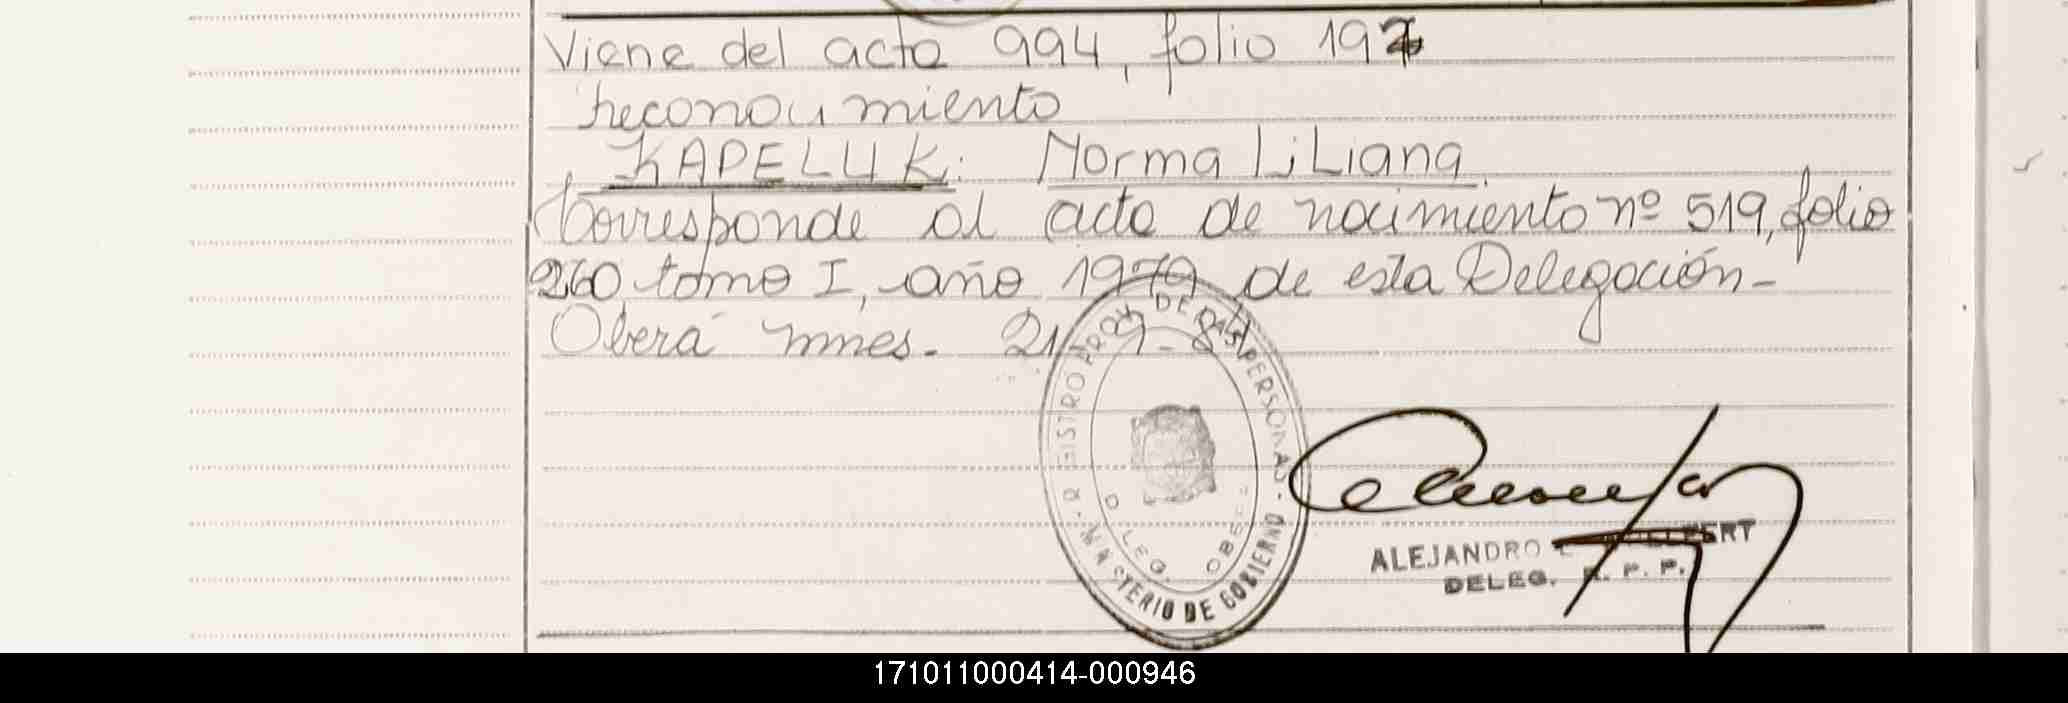 Viene del acta 994, folio 197
reconocimiento
KAPELUK: Norma Liliana
Corresponde al acta de nacimiento nº 519, folio
260 tomo I, año 1979 de esta Delegación-
Oberá mnes. 21-9-84
MINISTERIO DE GOBIERNO
DELEG. OBERÁ
ALEJANDRO
DELEG. R. P. P.
171011000414-000946